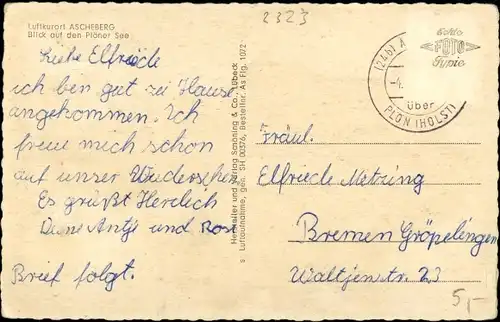 Luftkurort ASCHEBERG
Blick auf den Plöner See
2323
Liebe Elfriede
ich bin gut zu Hause
angekommen. Ich
freue mich schon
auf unser Wiedersehen
Es grüßt Herzlich
Deine Antje und
Brief folgt.
Hersteller und Verlag Schöning & Co., Lübeck
s Luftaufnahme, gen. SH 00376, Bestellnr. As Flg. 1072
(24b) A
-4.
über
PLÖN (HOLST)
Echte
FOTO
Typie
Fräul.
Elfriede Metzing
Bremen Gröpelingen
Waltjenstr. 23
5,-